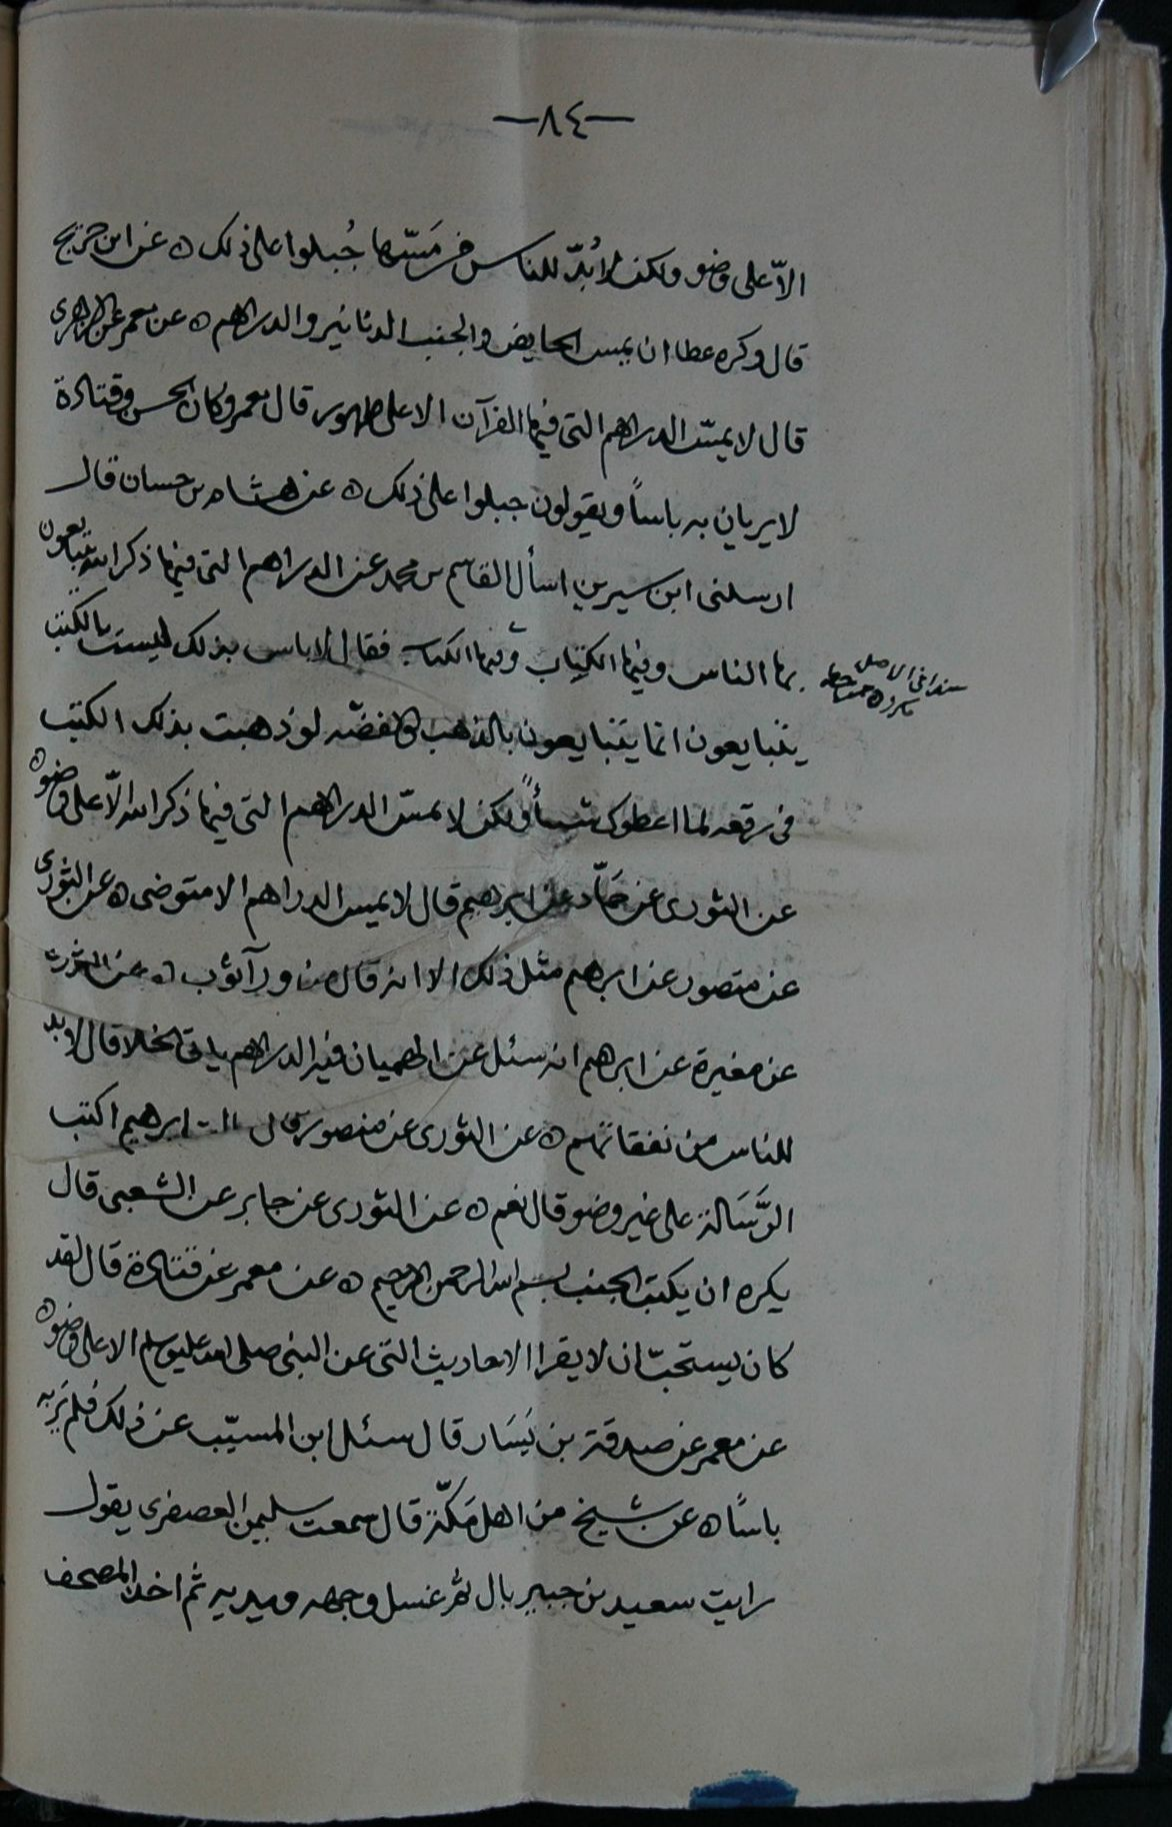 —٨٤—
الاّ على وضو ولكن لا بُدّ للناس من مَسّها جُبلوا على ذلك ه عن ابن جريج
قال وكره عطا ان يمس الحايض والجنب الدنانير والدراهم ه عن معمر عن الزهرى
قال لا يمسّ الدراهم التى فيها القرآن الا على طهور قال معمر وكان الحسن وقتادة
لا يريان به باساً ويقولون جبلوا على ذلك ه عن هشام بن حسان قال
ارسلنى ابن سيرين اسأل القاسم بن محمد عن الدراهم التى فيها ذكر الله يتبايعون
بها الناس وفيها الكتاب وفيها الكتاب فقال لا باس بذلك ليست بالكتب
هكذا فى الاصل مكرر
يتبايعون انما يتبايعون بالذهب والفضه لو ذهبت بذلك الكتب
فى رقعه لما اعطوك شيئاً ولكن لا يمسّ الدراهم التى فيها ذكر الله الاّ على وضو ه
عن الثورى عن حمّاد عن ابرهيم قال لا يمس الدراهم الا متوضى ه عن الثورى
عن منصور عن ابرهيم مثل ذلك الا انه قال من ورآ ثوب ه عن الثورى
عن مغيرة عن ابرهيم انه سئل عن الهميان فيه الدراهم ياتى الخلا قال لا بد
للناس من نفقاتهم ه عن الثورى عن منصور قال ابرهيم اكتب
الرَّسَالة على غير وضو قال نعم ه عن الثورى عن جابر عن الشعبى قال
يكره ان يكتب الجنب بسم الله الرحمن الرحيم ه عن معمر عن قتادة قال لقد
كان يستحبّ ان لا يقرا الاحاديث التى عن النبى صلى الله عليه وسلم الا على وضو ه
عن معمر عن صدقة بن يَسَار قال سئل ابن المسيّب عن ذلك فلم يَرَ به
باساً ه عن شيخ من اهل مَكّة قال سمعت سليمن العصفرى يقول
رايت سعيد بن جبير بال ثم غسل وجهه ويديه ثم اخذ المصحف